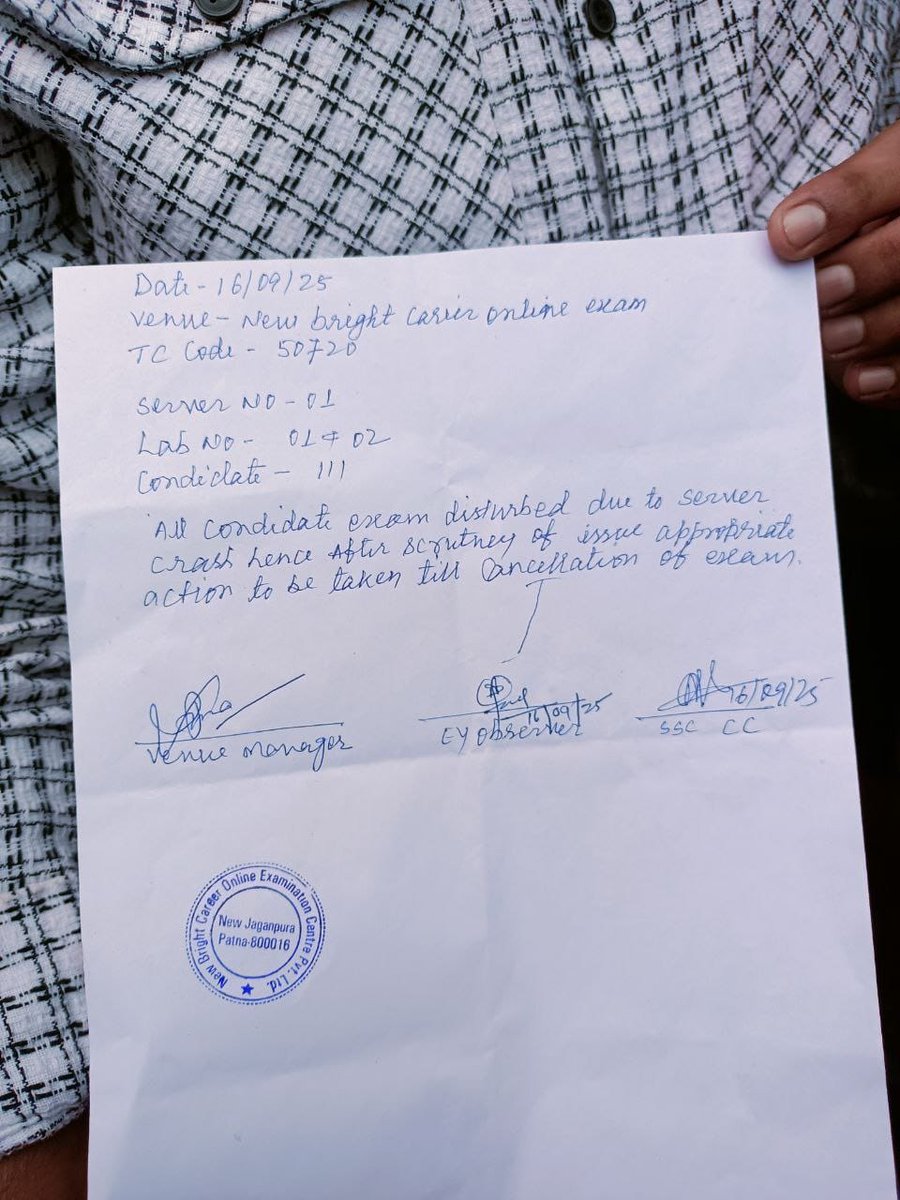 Date - 16/09/25
Venue - New bright carier online exam
TC Code - 50720
Server NO - 01
Lab NO - 01 & 02
Condidate - 111
All Condidate exam disturbed due to server
crash hence After scrutney of issue appropriate
action to be taken till Cancellation of exam.
16/09/25
16/09/25
Venue Manager
EY Observer
SSC CC
New Bright Career Online Examination Centre Pvt. Ltd.
New Jaganpura
Patna-800016